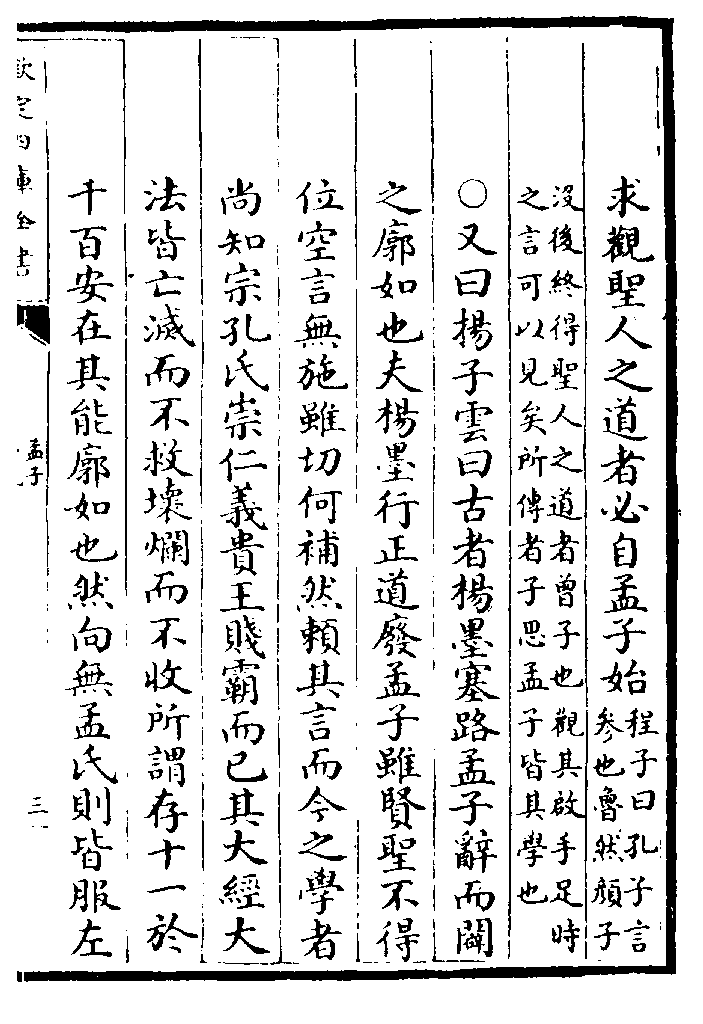 求觀聖人之道者必自孟子始程子曰孔子言
參也魯然顏子
沒後終得聖人之道者曾子也觀其啟手足時
之言可以見矣所傳者子思孟子皆其學也
○又曰揚子雲曰古者楊墨塞路孟子辭而闢
之廓如也夫楊墨行正道廢孟子雖賢聖不得
位空言無施雖切何補然賴其言而今之學者
尚知宗孔氏崇仁義貴王賤霸而已其大經大
法皆亡滅而不救壞爛而不收所謂存十一於
千百安在其能廓如也然向無孟氏則皆服左
欽定四庫全書
孟子
三